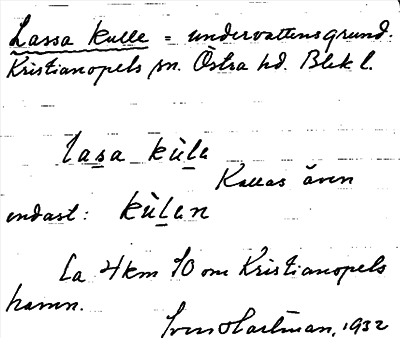 Lassa kulle = undervattensgrund.
Kristianopels sn. Östra hd. Blek l.
lasa kùle
Kallas även
endast: kùlen
Ca 4 km SO om Kristianopels
hamn.
Sven Hartman, 1932